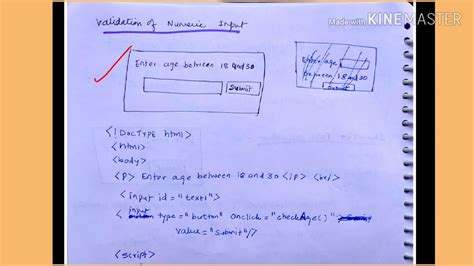 Made with KINEMASTER
Validation of Numeric Input
Enter age between 18 and 30
Submit
Enter age
between 18 and 30
Submit
<!DOCTYPE html>
<html>
<body>
<P> Enter age between 18 and 30 </P> <br/>
<input id = "text1">
<input type = "button" onclick = "checkAge()"
value = "Submit"/>
<script>